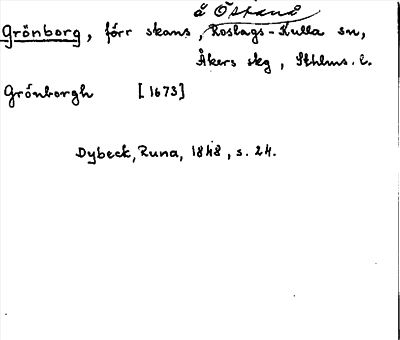 å Östanå
Grönborg, förr skans, Roslags-Kulla sn,
Åkers skg, Sthlms. l.
Grönborgh [1673]
Dybeck, Runa, 1848, s. 24.